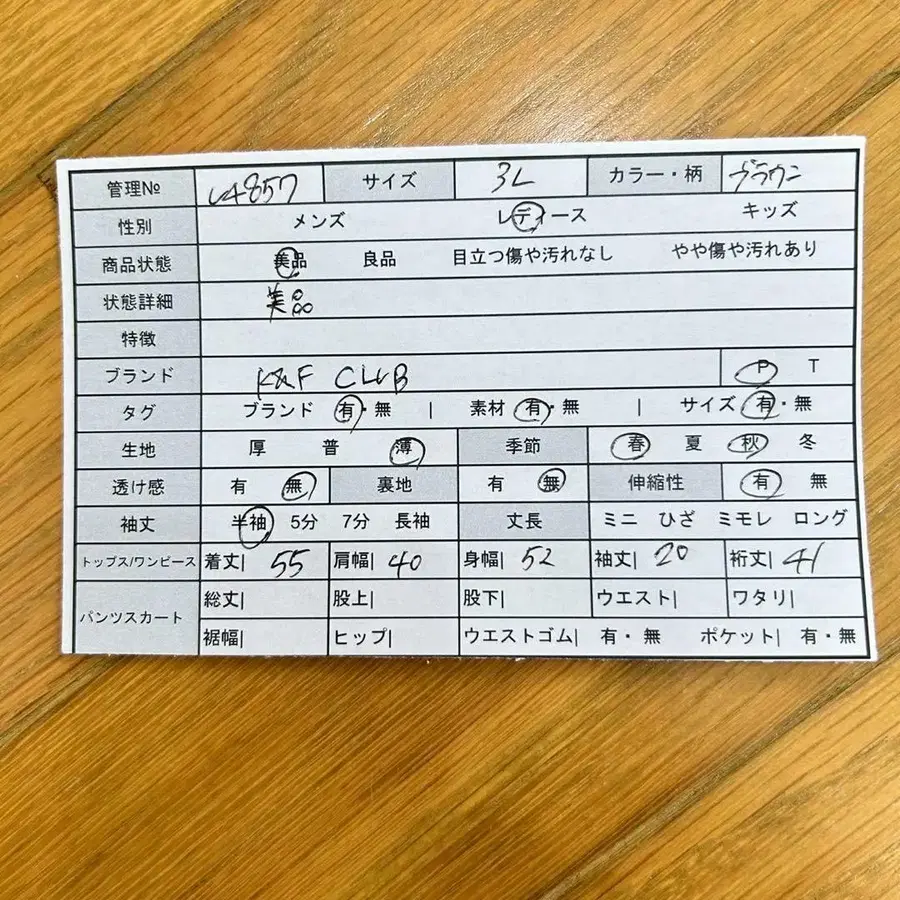 管理№ U4857 サイズ 3L カラー・柄 ブラウン
性別 メンズ レディース キッズ
商品状態 美品 良品 目立つ傷や汚れなし やや傷や汚れあり
状態詳細 美品
特徴
ブランド K&F CLUB P T
タグ ブランド 有・無 | 素材 有・無 | サイズ 有・無
生地 厚 普 薄 季節 春 夏 秋 冬
透け感 有 無 裏地 有 無 伸縮性 有 無
袖丈 半袖 5分 7分 長袖 丈長 ミニ ひざ ミモレ ロング
トップス/ワンピース 着丈| 55 肩幅| 40 身幅| 52 袖丈| 20 裄丈| 41
パンツスカート 総丈| 股上| 股下| ウエスト| ワタリ|
裾幅| ヒップ| ウエストゴム| 有・無 ポケット| 有・無